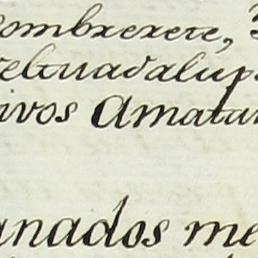 ombrerete,
elGuadalup
ivos Amatan
anados me